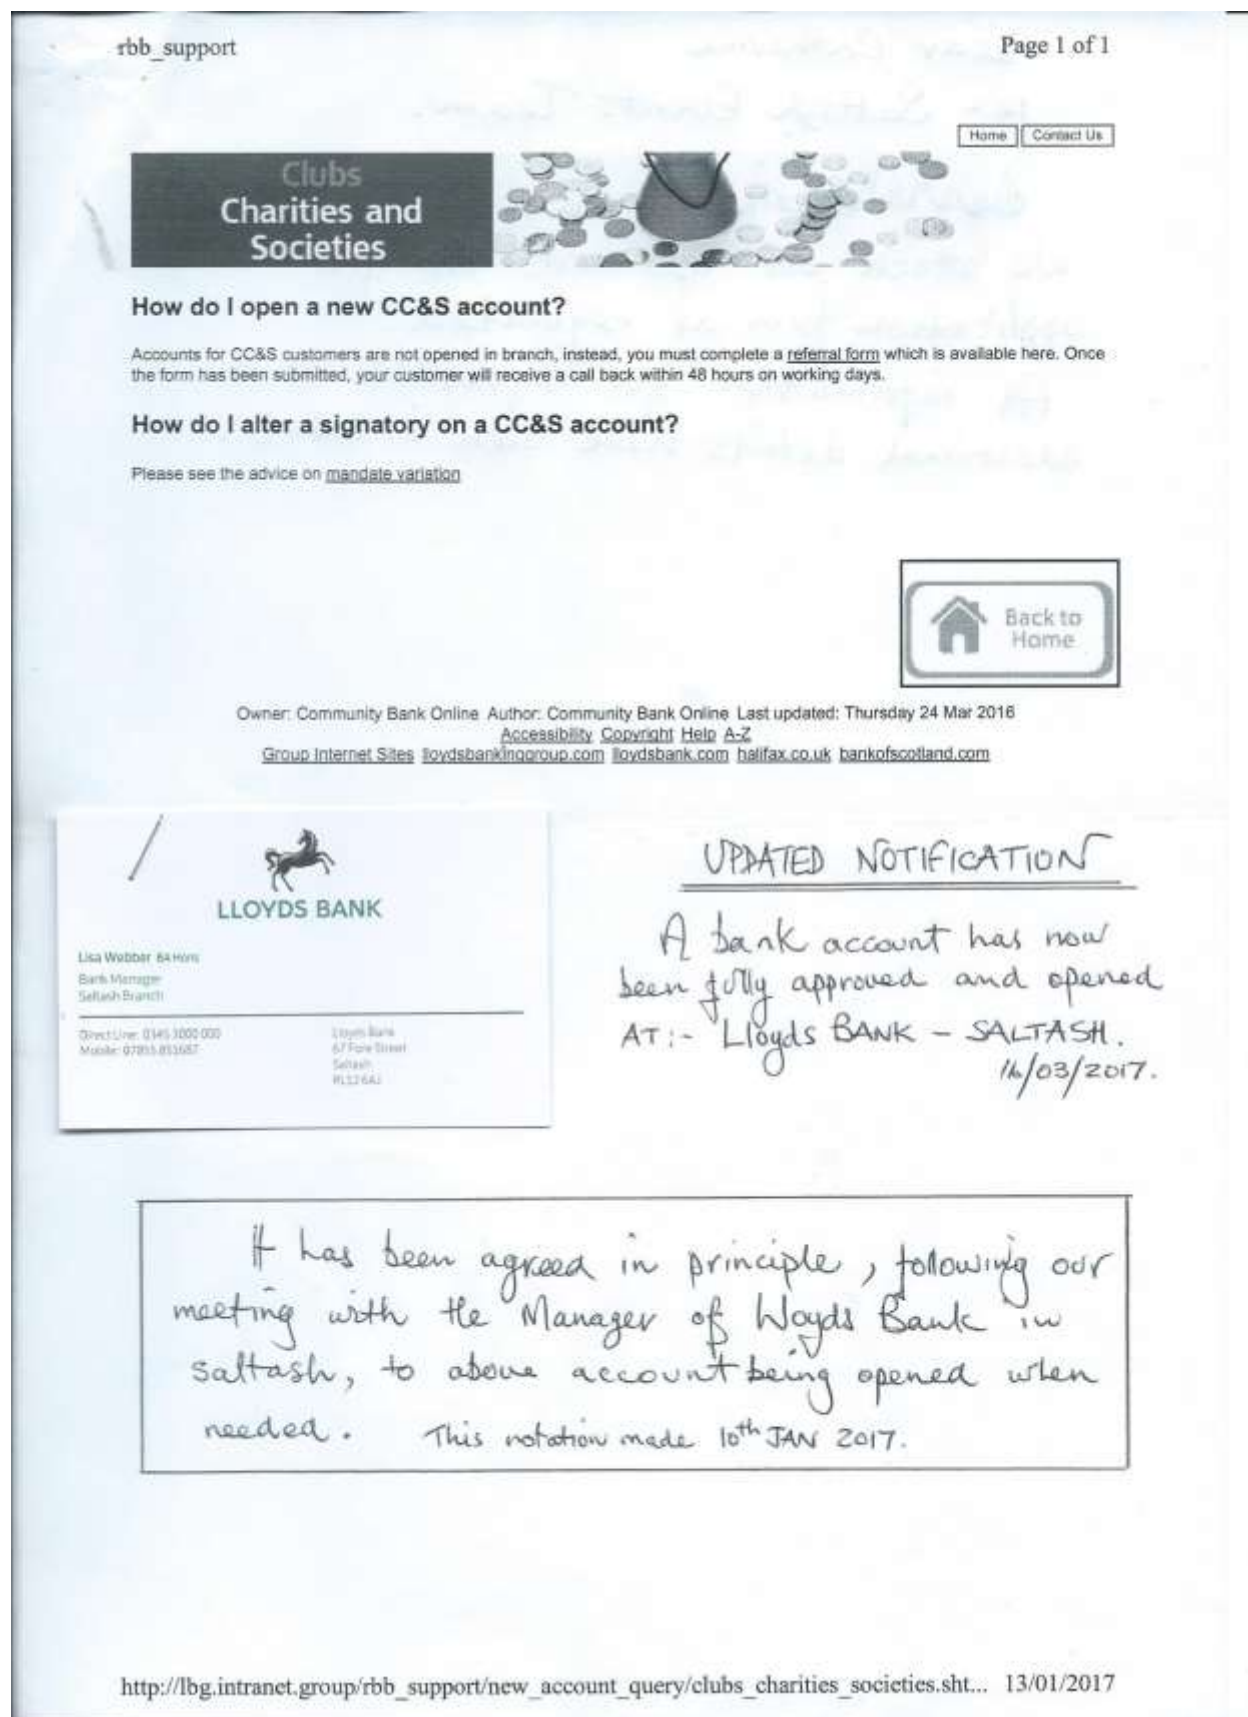 rbb_support
Page 1 of 1
Home Contact Us
Clubs
Charities and
Societies
How do I open a new CC&S account?
Accounts for CC&S customers are not opened in branch, instead, you must complete a referral form which is available here. Once
the form has been submitted, your customer will receive a call back within 48 hours on working days.
How do I alter a signatory on a CC&S account?
Please see the advice on mandate variation
Back to
Home
Owner: Community Bank Online Author: Community Bank Online Last updated: Thursday 24 Mar 2016
Accessibility Copyright Help A-Z
Group Internet Sites lloydsbankinggroup.com lloydsbank.com halifax.co.uk bankofscotland.com
LLOYDS BANK
Lisa Webber BA Hons
Bank Manager
Saltash Branch
Direct Line: 0345 3000 000
Mobile:
Lloyds Bank
67 Fore Street
Saltash
PL12 6AJ
UPDATED NOTIFICATION
A bank account has now
been fully approved and opened
AT:- Lloyds BANK - SALTASH.
/03/2017.
It has been agreed in principle, following our
meeting with the Manager of Lloyds Bank in
Saltash, to above account being opened when
needed. This notation made 10th JAN 2017.
http://lbg.intranet.group/rbb_support/new_account_query/clubs_charities_societies.sht... 13/01/2017